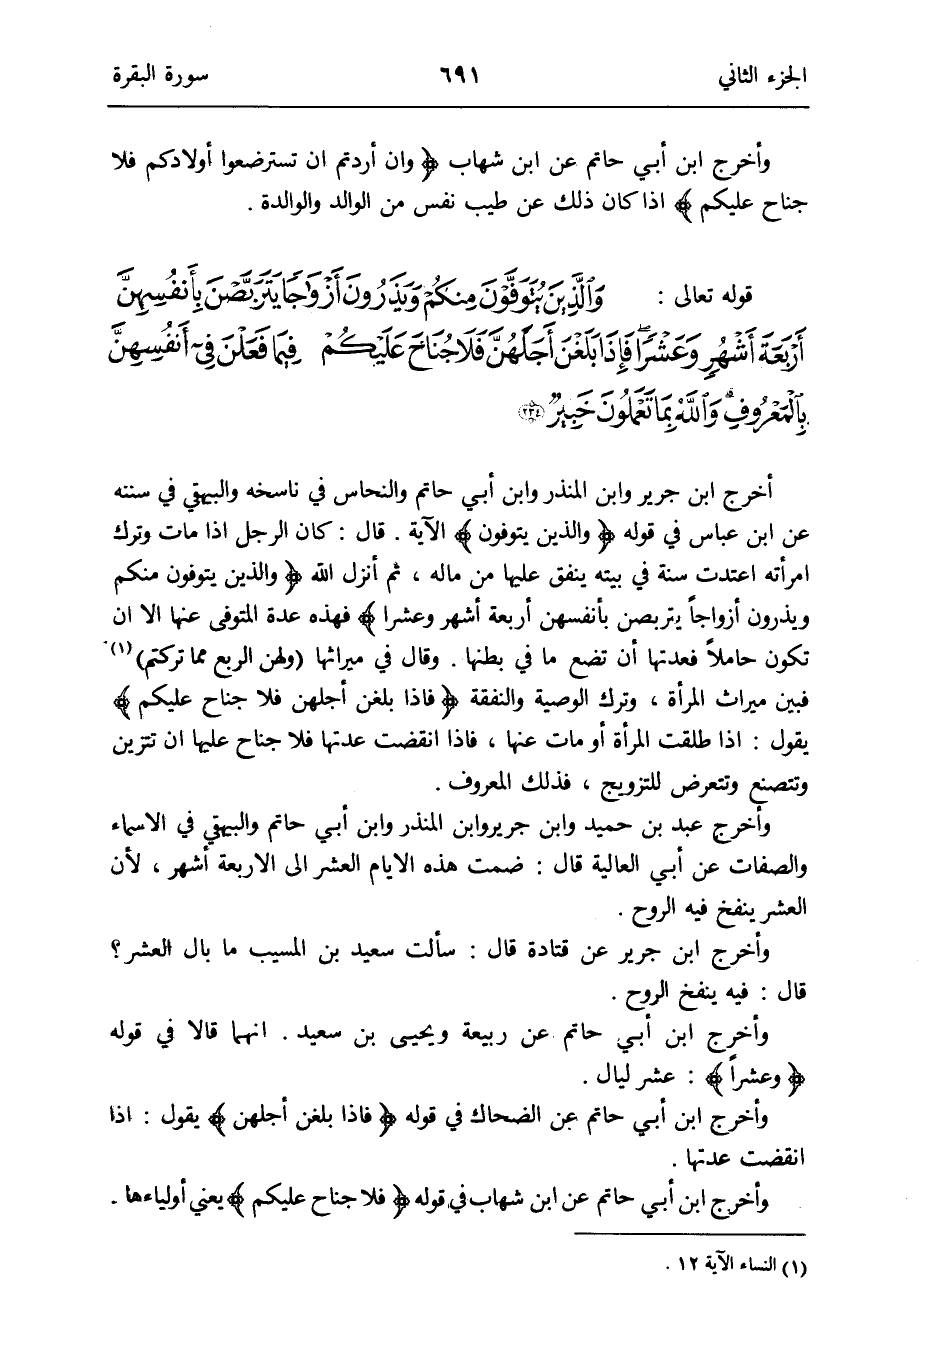 الجزء الثاني ٦٩١ سورة البقرة
وأخرج ابن أبي حاتم عن ابن شهاب ﴿ وان أردتم ان تسترضعوا أولادكم فلا
جناح عليكم ﴾ اذا كان ذلك عن طيب نفس من الوالد والوالدة .
قوله تعالى : وَٱلَّذِينَ يُتَوَفَّوْنَ مِنكُمْ وَيَذَرُونَ أَزْوَٰجًا يَتَرَبَّصْنَ بِأَنفُسِهِنَّ
أَرْبَعَةَ أَشْهُرٍ وَعَشْرًا ۖ فَإِذَا بَلَغْنَ أَجَلَهُنَّ فَلَا جُنَاحَ عَلَيْكُمْ فِيمَا فَعَلْنَ فِىٓ أَنفُسِهِنَّ
بِٱلْمَعْرُوفِ ۗ وَٱللَّهُ بِمَا تَعْمَلُونَ خَبِيرٌ ٢٣٤
أخرج ابن جرير وابن المنذر وابن أبي حاتم والنحاس في ناسخه والبيهقي في سننه
عن ابن عباس في قوله ﴿ والذين يتوفون ﴾ الآية . قال : كان الرجل اذا مات وترك
امرأته اعتدت سنة في بيته ينفق عليها من ماله ، ثم أنزل الله ﴿ والذين يتوفون منكم
ويذرون أزواجاً يتربصن بأنفسهن أربعة أشهر وعشرا ﴾ فهذه عدة المتوفى عنها الا ان
تكون حاملاً فعدتها أن تضع ما في بطنها . وقال في ميراثها (ولهن الربع مما تركتم) (١)
فبين ميراث المرأة ، وترك الوصية والنفقة ﴿ فاذا بلغن أجلهن فلا جناح عليكم ﴾
يقول : اذا طلقت المرأة أو مات عنها ، فاذا انقضت عدتها فلا جناح عليها ان تتزين
وتتصنع وتتعرض للتزويج ، فذلك المعروف .
وأخرج عبد بن حميد وابن جرير وابن المنذر وابن أبي حاتم والبيهقي في الاسماء
والصفات عن أبي العالية قال : ضمت هذه الايام العشر الى الاربعة أشهر ، لأن
العشر ينفخ فيه الروح .
وأخرج ابن جرير عن قتادة قال : سألت سعيد بن المسيب ما بال العشر ؟
قال : فيه ينفخ الروح .
وأخرج ابن أبي حاتم عن ربيعة ويحيى بن سعيد . انهما قالا في قوله
﴿ وعشراً ﴾ : عشر ليال .
وأخرج ابن أبي حاتم عن الضحاك في قوله ﴿ فاذا بلغن أجلهن ﴾ يقول : اذا
انقضت عدتها .
وأخرج ابن أبي حاتم عن ابن شهاب في قوله ﴿ فلا جناح عليكم ﴾ يعني أولياءها .
(١) النساء الآية ١٢ .